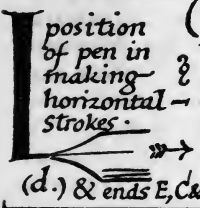 L position
of pen in
making
horizontal
strokes.
(d.) & ends E, C&